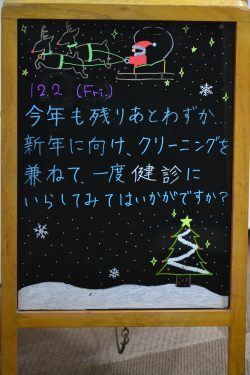 12.2 (Fri.)
今年も残りあとわずか…
新年に向け、クリーニングを
兼ねて、一度健診に
いらしてみてはいかがですか？